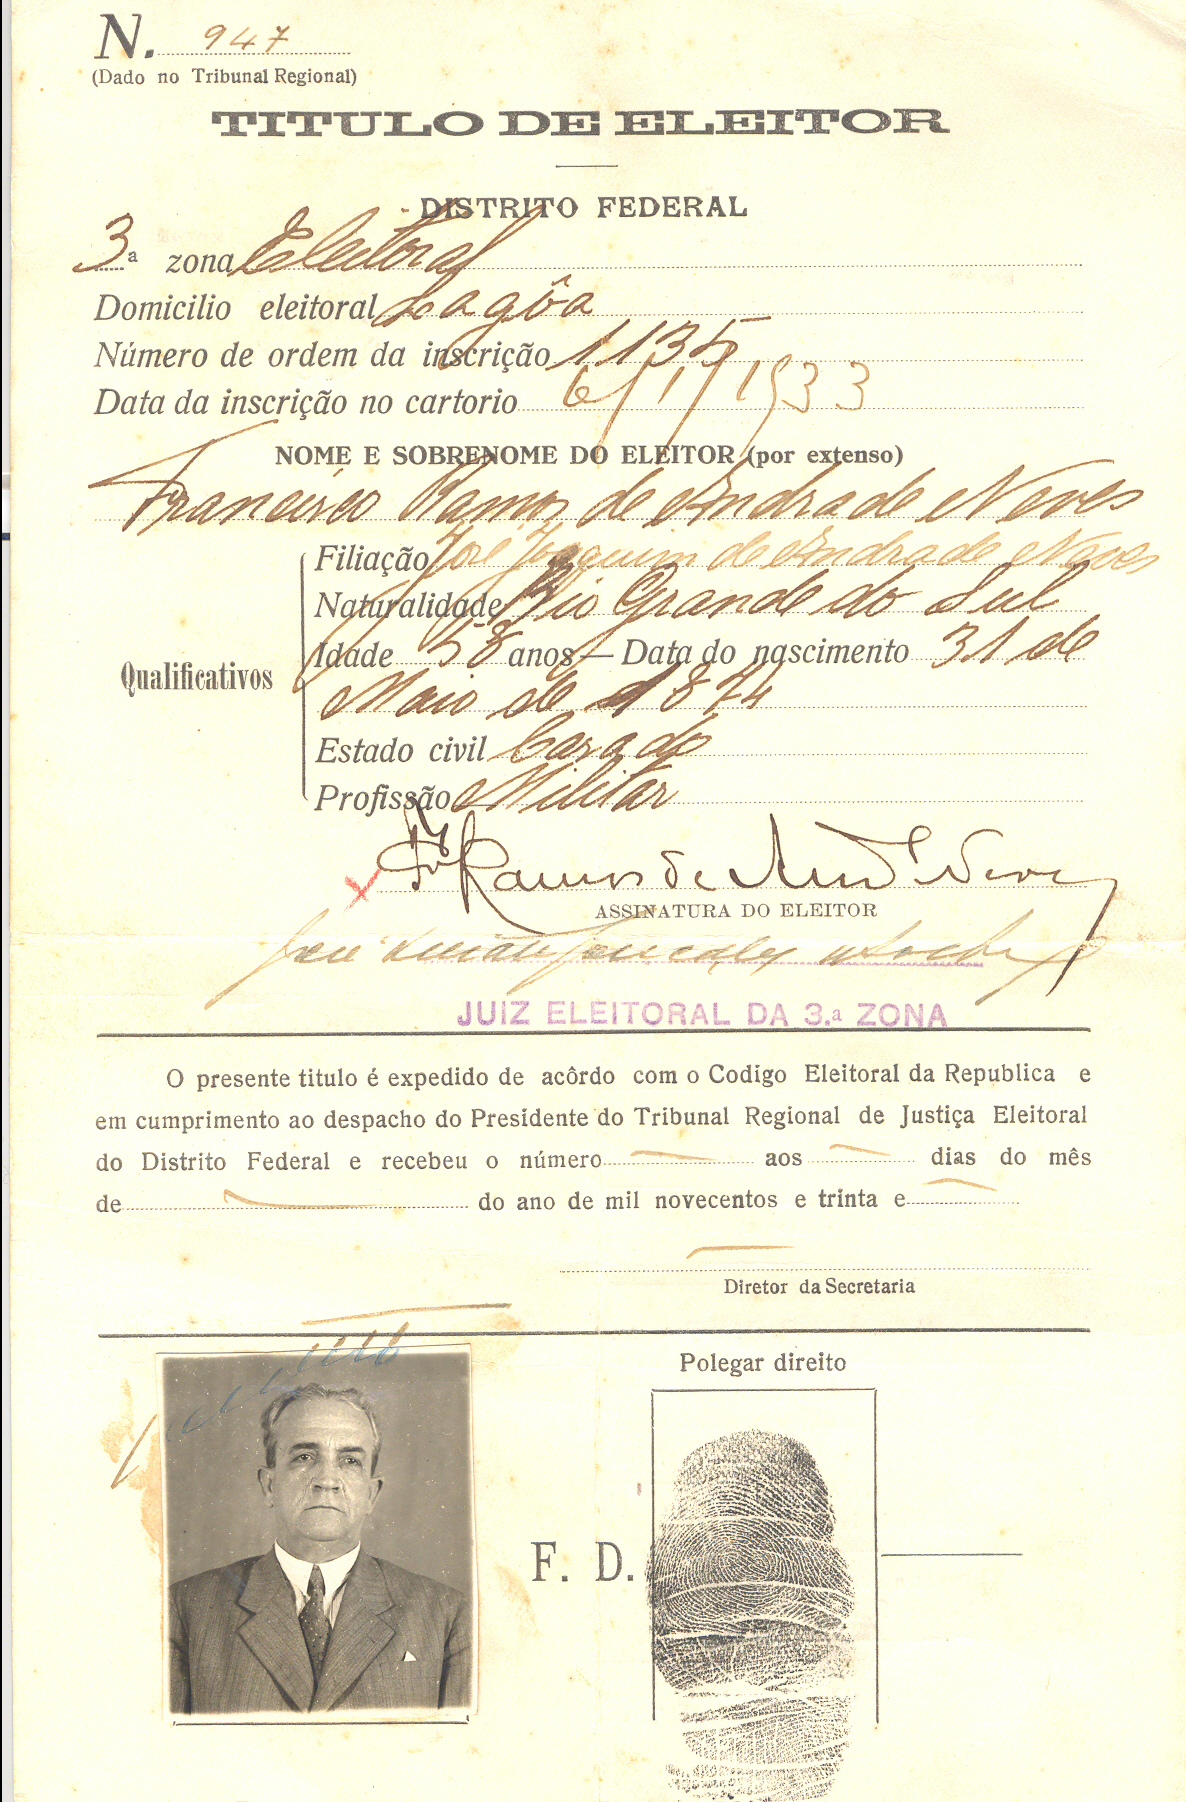 N. 947
(Dado no Tribunal Regional)
TITULO DE ELEITOR
DISTRITO FEDERAL
3ª zona Eleitoral
Domicilio eleitoral Lagôa
Número de ordem da inscrição 1135
Data da inscrição no cartorio 6/1/1933
NOME E SOBRENOME DO ELEITOR (por extenso)
Francisco Ramos de Andrade Neves
Qualificativos
Filiação José Joaquim de Andrade Neves
Naturalidade Rio Grande do Sul
Idade 58 anos — Data do nascimento 31 de
Maio de 1874
Estado civil Casado
Profissão Militar
Ramos de Neves
ASSINATURA DO ELEITOR
JUIZ ELEITORAL DA 3.ª ZONA
O presente titulo é expedido de acôrdo com o Codigo Eleitoral da Republica e
em cumprimento ao despacho do Presidente do Tribunal Regional de Justiça Eleitoral
do Distrito Federal e recebeu o número aos dias do mês
de do ano de mil novecentos e trinta e
Diretor da Secretaria
Polegar direito
F. D.